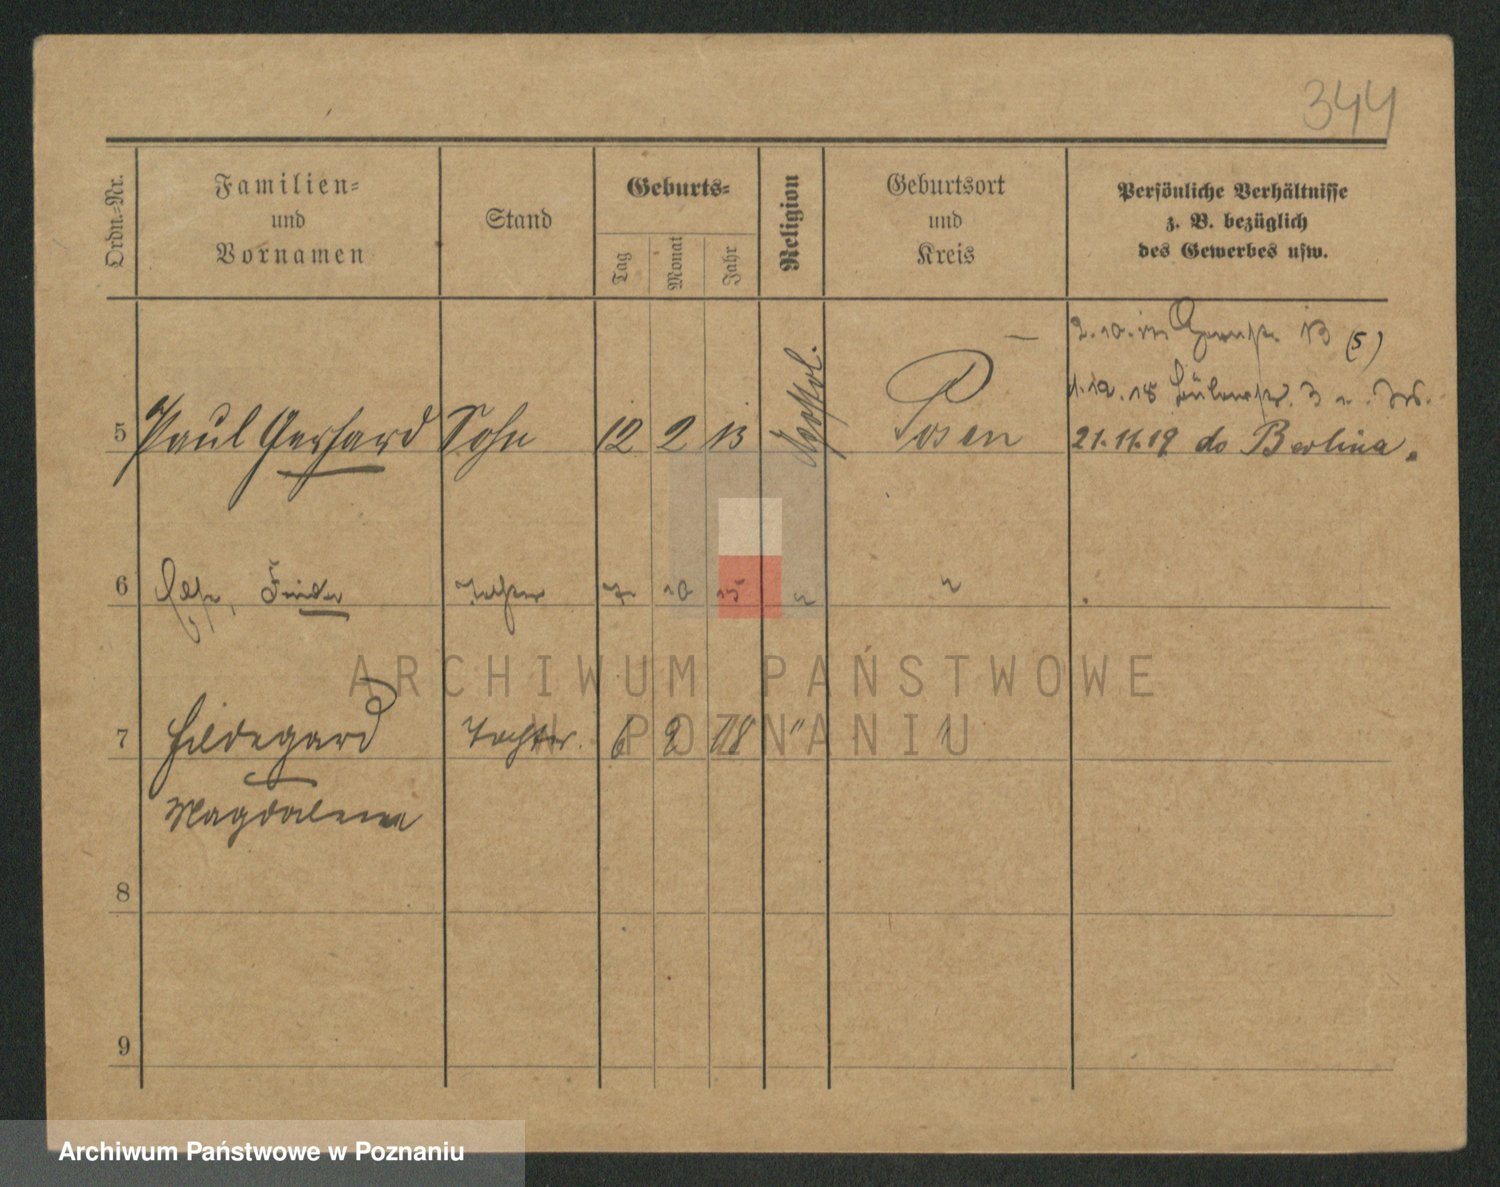 344
Ordn.-Nr.
Familien-
und
Vornamen
Stand
Geburts-
Tag
Monat
Jahr
Religion
Geburtsort
und
Kreis
Persönliche Verhältnisse
z. B. bezüglich
des Gewerbes usw.
2.10. 13 (5)
1.10.18 3
5 Paul Gerhard Sohn 12 2 13 Posen 21.11.19 do Berlina.
6 Tochter 7 10 15 " "
7 Hildegard Tochter. 6 2 18 " "
Magdalena
8
9
ARCHIWUM PAŃSTWOWE
W POZNANIU
Archiwum Państwowe w Poznaniu